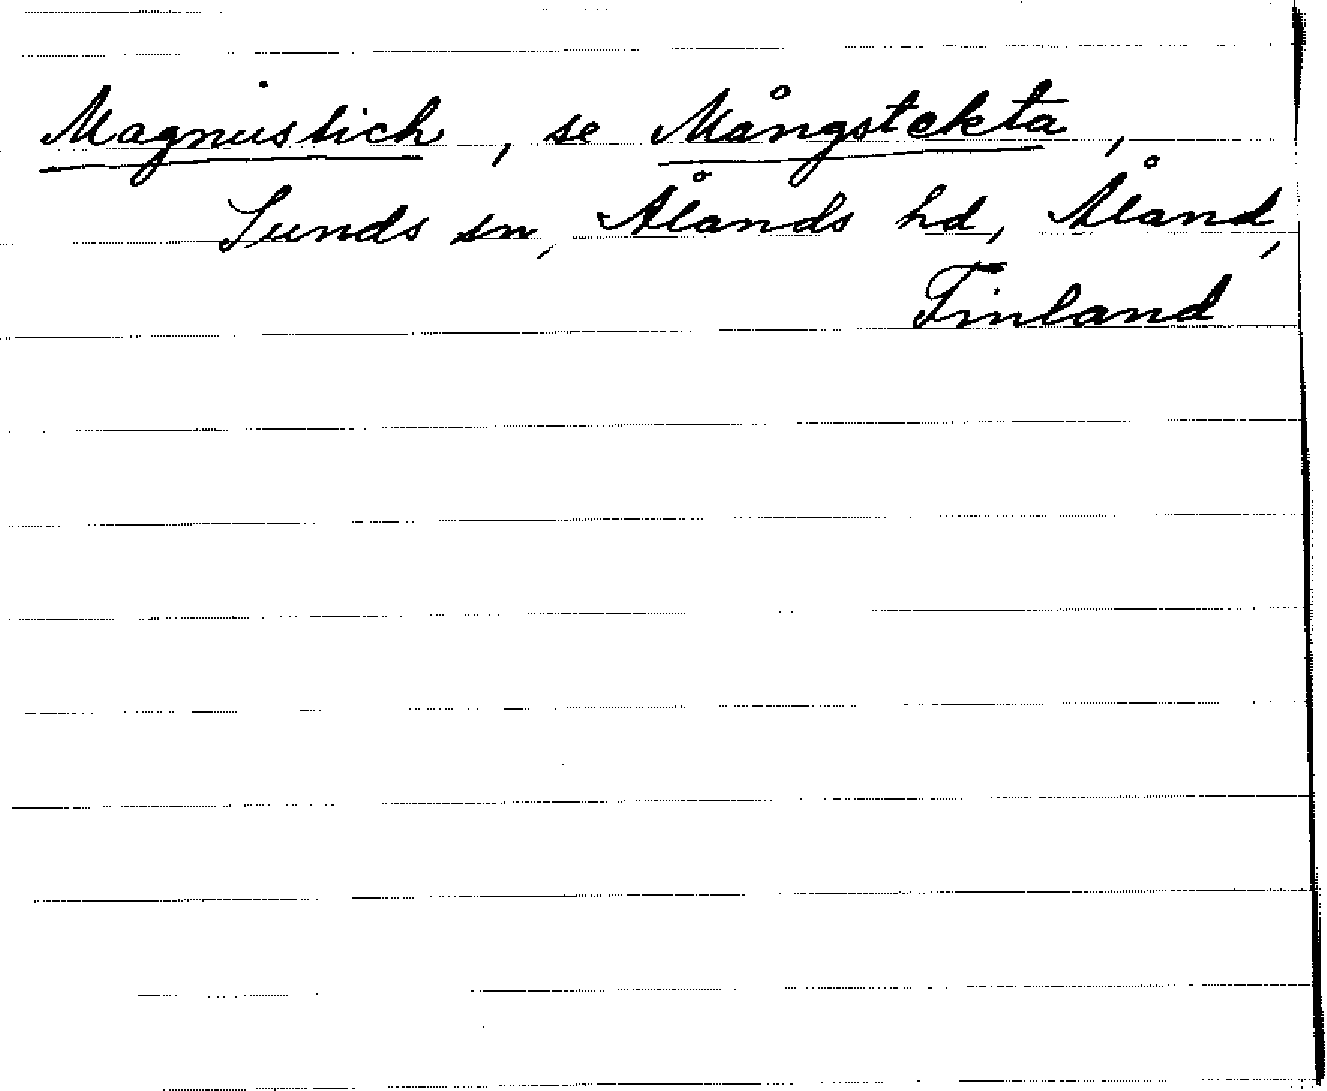 Magnustich, se Mångstekta,
Sunds sn, Ålands hd, Åland,
Finland